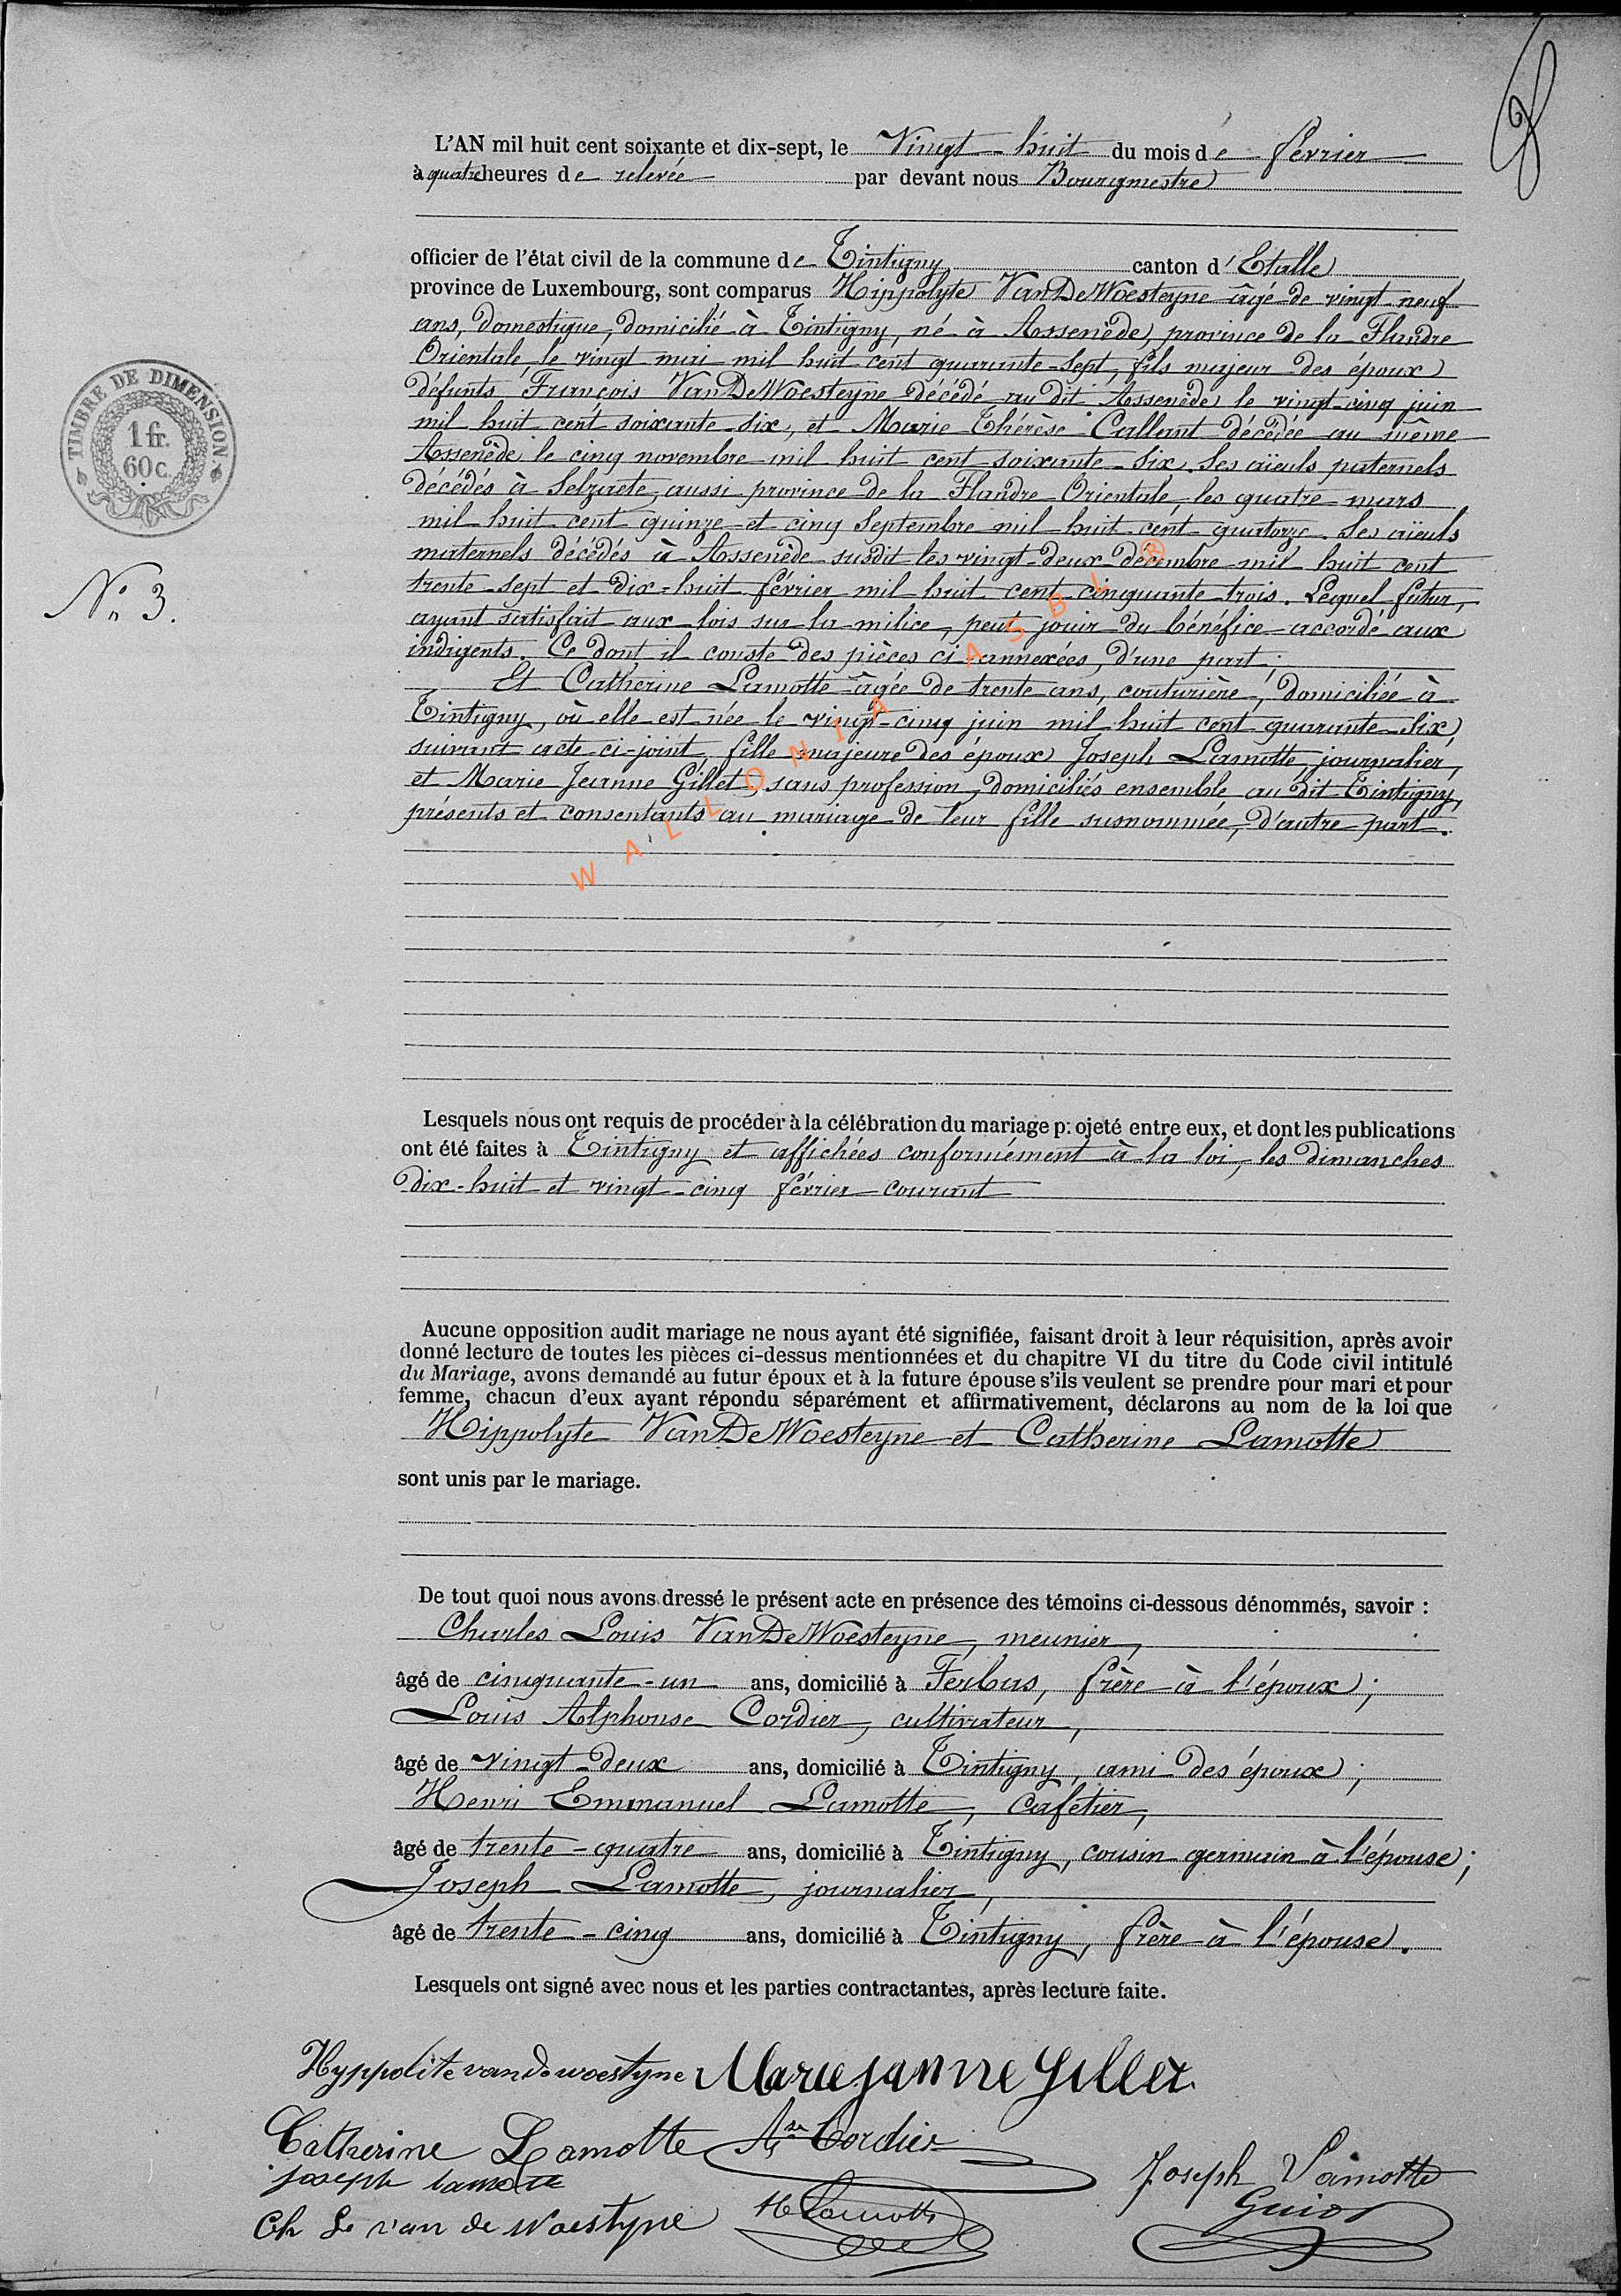 L'AN mil huit cent soixante et dix-sept, le Vingt-huit du mois de février
à quatre heures de relevée par devant nous Bourgmestre
officier de l'état civil de la commune de Tintigny canton d'Etalle
province de Luxembourg, sont comparus Hippolyte VanDeWoesteyne âgé de vingt-neuf
ans, domestique, domicilié à Tintigny, né à Assenède, province de la Flandre
Orientale, le vingt mai mil huit cent quarante-sept, fils majeur des époux
défunts, François VanDeWoesteyne décédé au dit Assenède le vingt-cinq juin
mil huit cent soixante-six, et Marie Thérèse Callant décédée au même
Assenède le cinq novembre mil huit cent soixante-six, Ses aïeuls paternels
décédés à Selzaete, aussi province de la Flandre Orientale, les quatre mars
mil huit cent quinze et cinq Septembre mil huit cent quatorze. Ses aïeuls
maternels décédés à Assenède susdit les vingt-deux décembre mil huit cent
trente-sept et dix-huit février mil huit cent cinquante-trois. Lequel futur,
ayant satisfait aux lois sur la milice, peut jouir du bénéfice accordé aux
indigents. Ce dont il conste des pièces ci-annexées, d'une part;
Et Catherine Lamotte âgée de trente ans, couturière, domiciliée à
Tintigny, où elle est née le vingt-cinq juin mil huit cent quarante-six
suivant acte ci-joint, fille majeure des époux Joseph Lamotte, journalier,
et Marie Jeanne Gillet, sans profession, domiciliés ensemble au dit Tintigny,
présents et consentants au mariage de leur fille susnommée, d'autre part.
TIMBRE DE DIMENSION
1 fr.
60 c.
No 3.
WALLONIA ASBL ®
Lesquels nous ont requis de procéder à la célébration du mariage p:ojeté entre eux, et dont les publications
ont été faites à Tintigny et affichées conformément à la loi, les dimanches
dix-huit et vingt-cinq février courant
Aucune opposition audit mariage ne nous ayant été signifiée, faisant droit à leur réquisition, après avoir
donné lecture de toutes les pièces ci-dessus mentionnées et du chapitre VI du titre du Code civil intitulé
du Mariage, avons demandé au futur époux et à la future épouse s'ils veulent se prendre pour mari et pour
femme, chacun d'eux ayant répondu séparément et affirmativement, déclarons au nom de la loi que
Hippolyte VanDeWoesteyne et Catherine Lamotte
sont unis par le mariage.
De tout quoi nous avons dressé le présent acte en présence des témoins ci-dessous dénommés, savoir :
Charles Louis VanDeWoesteyne, meunier,
âgé de cinquante-un ans, domicilié à Ferbus, frère à l'époux;
Louis Alphonse Cordier, cultivateur,
âgé de vingt-deux ans, domicilié à Tintigny, ami des époux;
Henri Emmanuel Lamotte, Cafetier,
âgé de trente-quatre ans, domicilié à Tintigny, cousin germain à l'épouse;
Joseph Lamotte, journalier,
âgé de trente-cinq ans, domicilié à Tintigny, frère à l'épouse.
Lesquels ont signé avec nous et les parties contractantes, après lecture faite.
Hyppolite van de woestyne Marie janne Gillet
Catherine Lamotte Ase Cordier
joseph lamotte Joseph Lamotte
Ch Ls van de Woestyne H Lamotte Guiot